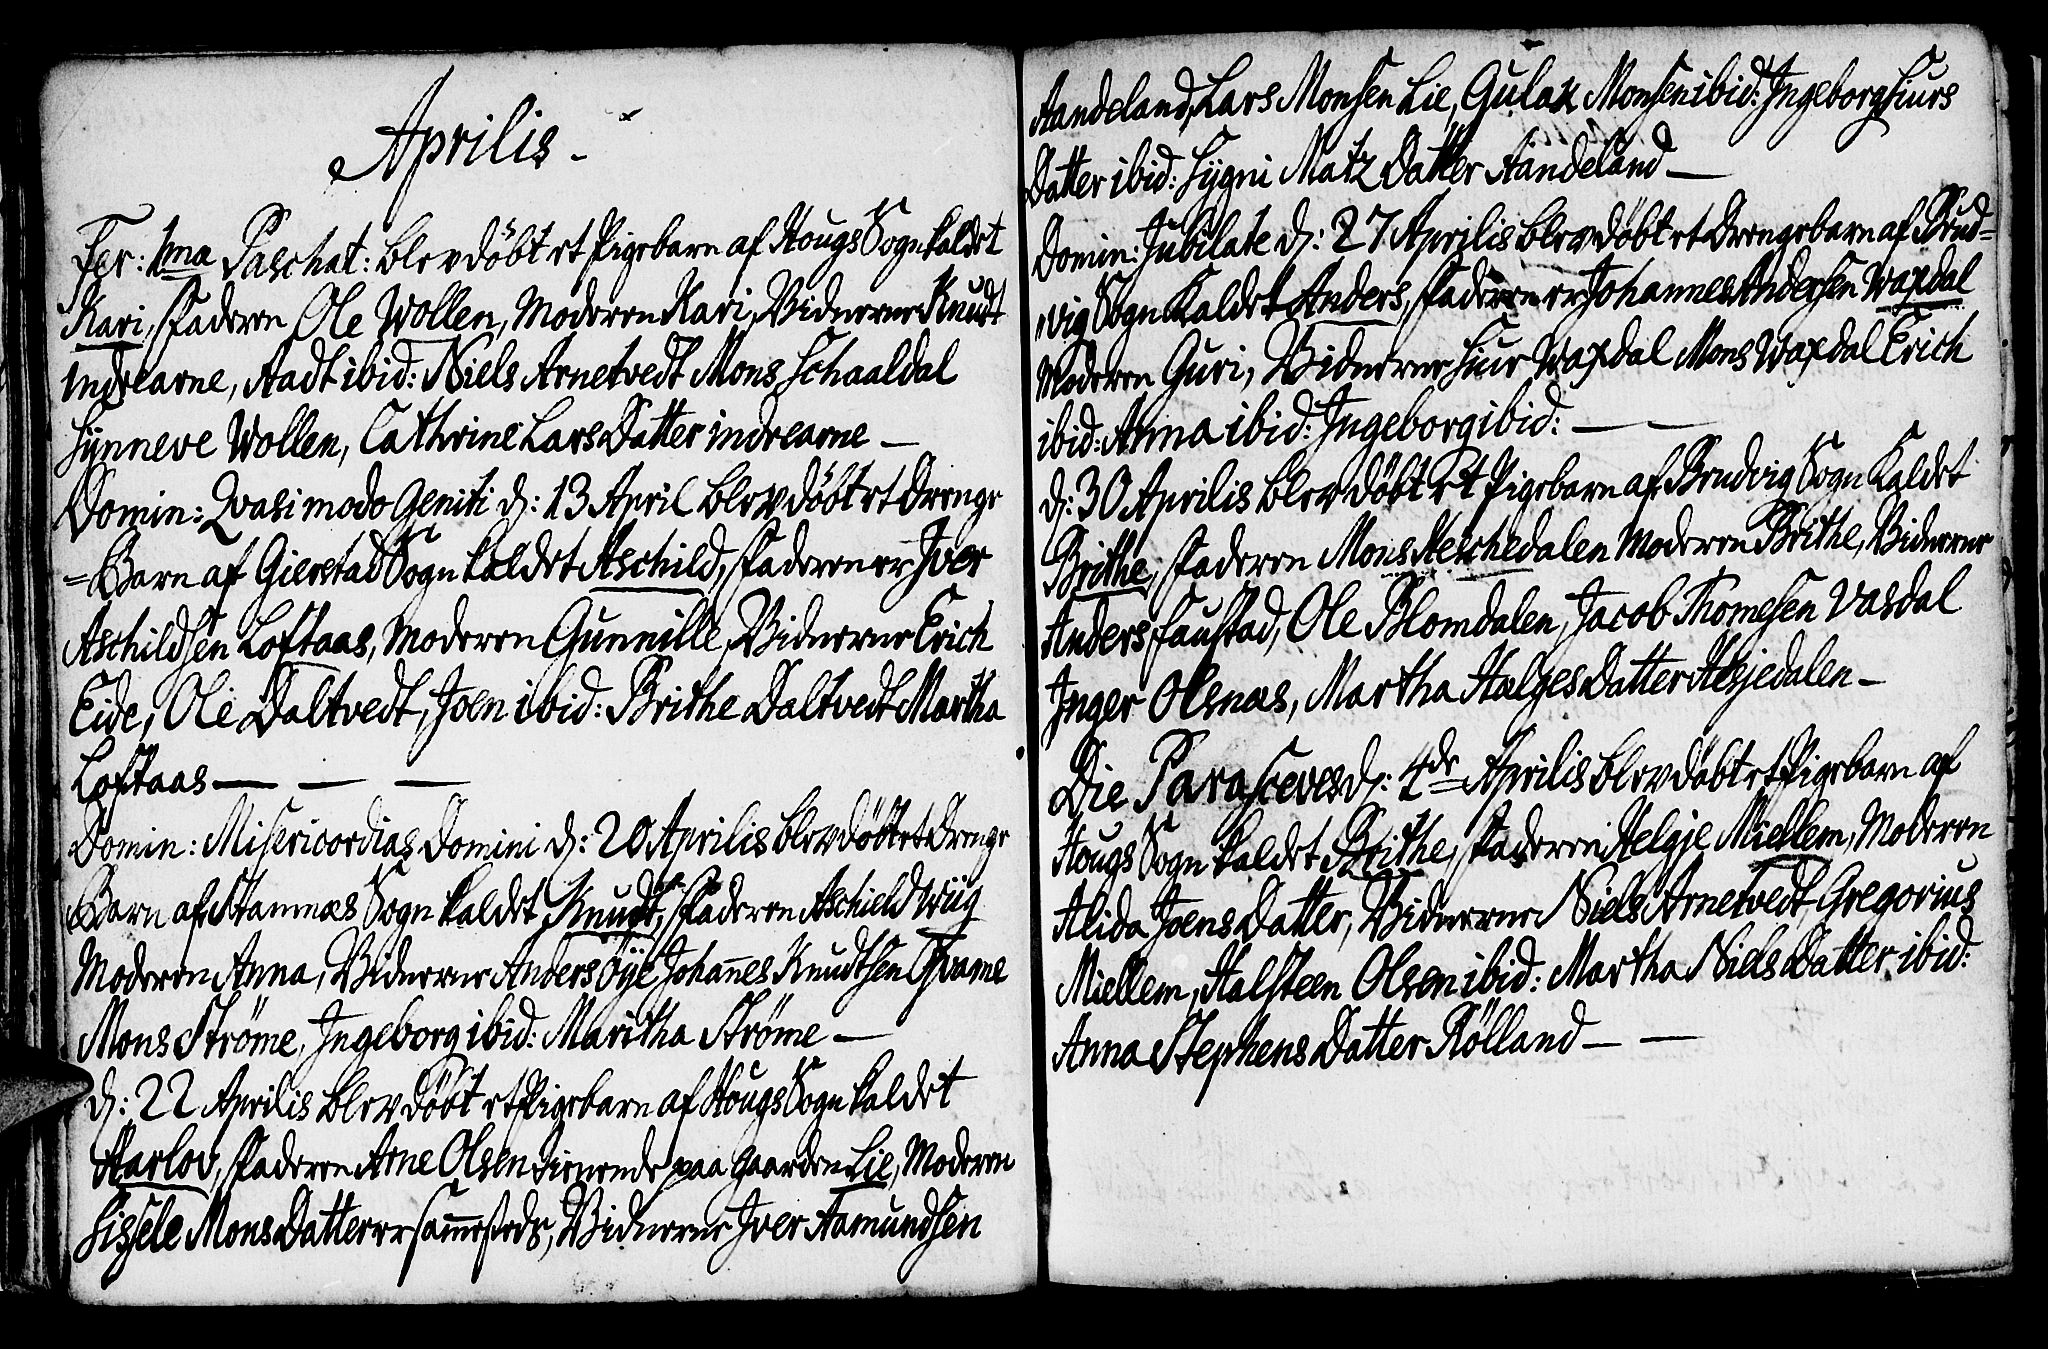 Aprilis
Fer: 1ma Paschat: blev döbt et Pigebarn af Hougs Sogn kaldet
Kari, Faderen Ole Wollen, Moderen Kari, Vidnerne Knudt
indrearne, Aadt ibid: Niels Arnetvedt Mons Schaaldal
Synneve Wollen, Cathrine Lars Datter indrearne —
Domin: Qvasimodo Geniti d: 13 April blev döbt et Drenge
=Barn af Gierstad Sogn kaldet Aschild, Faderen er Iver
Aschildsen Loftaas, Moderen Gunnille, Vidnerne Erich
Eide, Ole Daltvedt, Joen ibid: Brithe Daltvedt Martha
Loftaas — — —
Domin: Misericordias Domini d: 20 Aprilis blev döbt et Drenge
Barn af Stamnæs Sogn kaldet Knudt, Faderen Aschield Wüg
Moderen Anna, Vidnerne Anders Öÿe Johañes Knudtsen Qvame
Mons Ströme, Ingeborg ibid: Maritha Ströme —
d: 22 Aprilis blev döbt et Pigebarn af Hougs Sogn kaldet
Harlov, Faderen Arne Olsen tienende paa gaarden Lie, Moderen
Sissele Mons Datter er sam̃esteds, Vidnerne Iver Aamundsen
Aandeland, Lars Monsen Lie, Gulak Monsen ibid: Ingeborg Siurs
Datter ibid: Sygni Matz Datter Aandeland —
Domin: Jubilate d: 27 Aprilis blev döbt et Drengebarn af Brud=
vig Sogn kaldet Anders, Faderen er Johannes Andersen Waxdal
Moderen Guri, Vidnerne Siur Waxdal Mons Waxdal Erich
ibid: Anna ibid: Ingeborg ibid: — —
d: 30 Aprilis blev döbt et Pigebarn af Brudvig Sogn kaldet
Brithe, Faderen Mons Heschedalen Moderen Brithe, Vidnerne
Anders Faustad, Ole Blomdalen, Jacob Thomesen Vasdal
Inger Olsnæs, Martha Hælges Datter Hesjedalen —
Die Parasceves d: 4de Aprilis blev döbt et Pigebarn af
Hougs Sogn kaldet Brithe, Faderen Helgje Miellem, Moderen
Alida Joens Datter, Vidnerne Niels Arnetvedt, Gregorius
Miellem, Halsteen Olsen ibid: Martha Niels Datter ibid:
Anna Stephens Datter Rölland — —